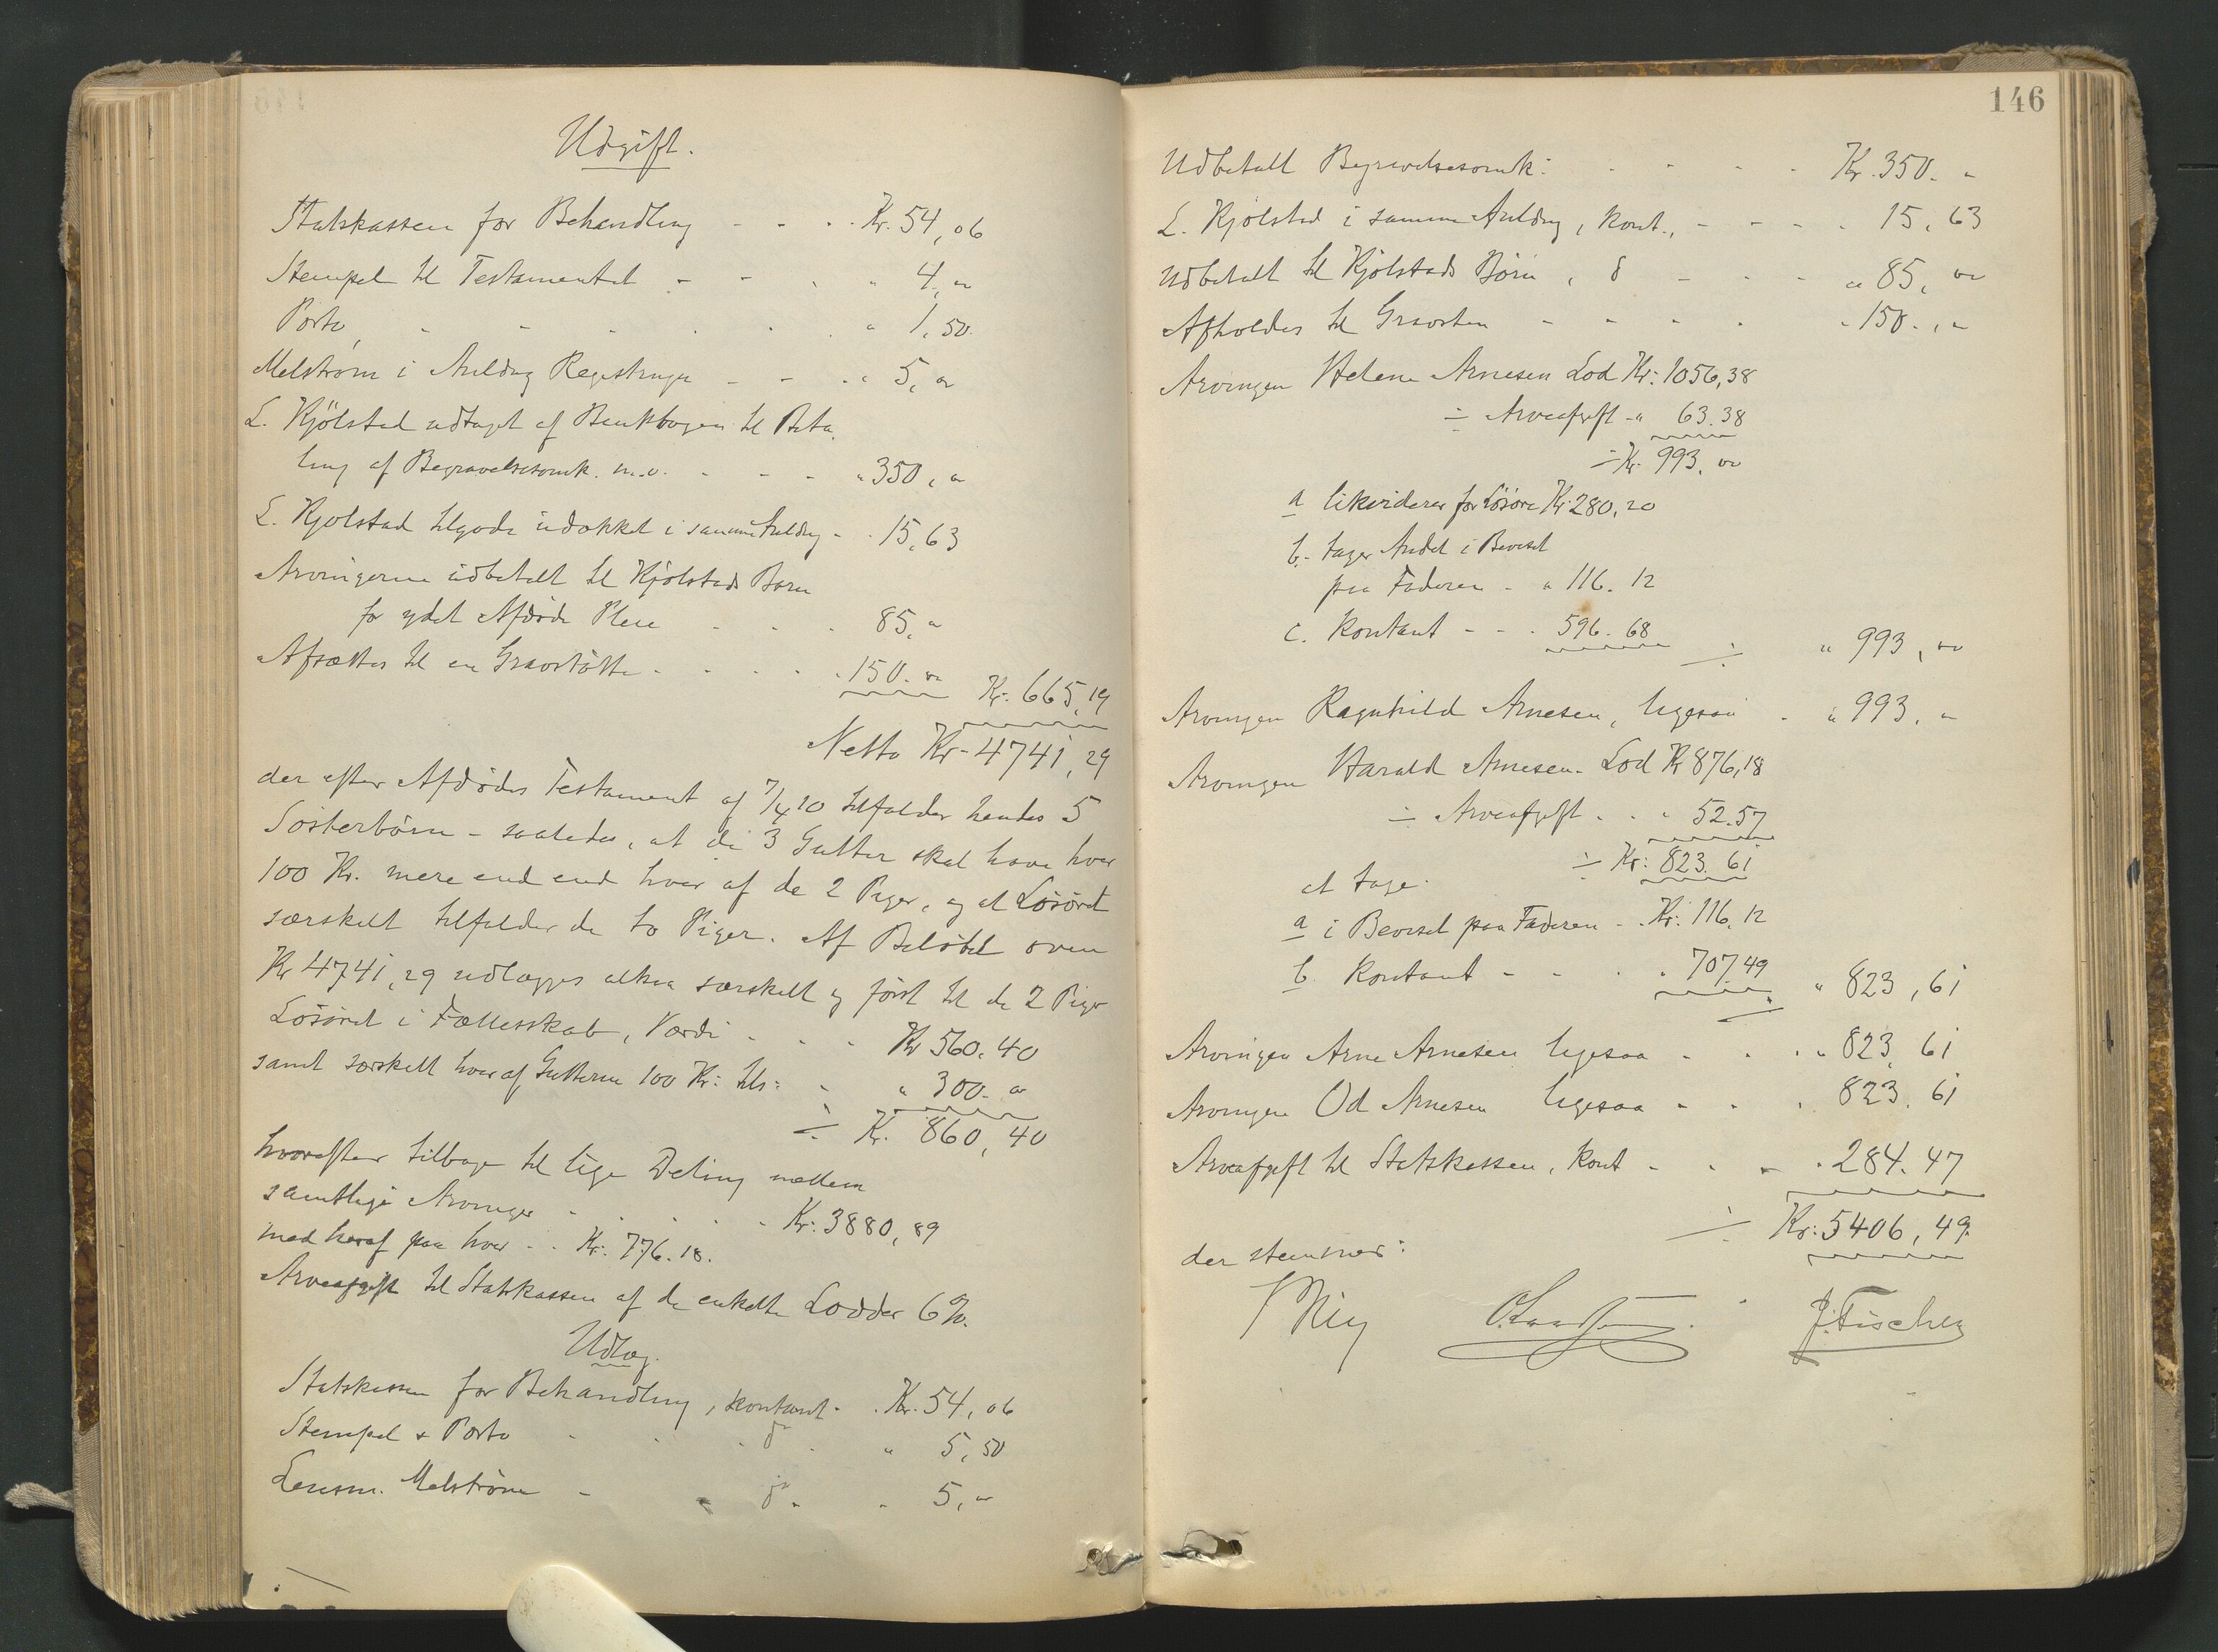 Udgift.
Statskassen for Behandling - - . . Kr. 54,06
Stempel til Testamentet - - . " 4, "
Porto, - - . . . " 1,50.
Melstrøm i Anledng Registrings - - . " 5, "
L. Kjölstad udtaget af Bankbogen til Beta-
ling af Begravelsesomk. m.v. . - - " 350, "
L. Kjolstad tilgode udokket i samme Anledng - . 15,63
Arvingerne udbetalt til Kjölstads Barn
for ydet Afdöde Pleie - . . 85, "
Afsættes til en Gravstötte . . . . 150. " Kr. 665,19
Netto Kr. 4741,29
der efter Afdödes Testament af 7/4 10 tilfalder hendes 5
Sösterbörn - saaledes, at de 3 Gutter skal have hver
100 Kr. mere end end hver af de 2 Piger, og at Lösöret
særskelt tilfalder de to Piger. Af Belöbet oven
Kr 4741,29 udlægges altsaa særskelt og först til de 2 Piger
Lösöret i Fællesskab, Værdi . . . Kr 560.40
samt særskelt hver af Gutterne 100 Kr: tils: - " 300. "
÷ Kr. 860,40
hvorefter tilbage til lige Deling mellem
samtlige Arvinger - . . . . Kr: 3880,89
med heraf paa hver . . Kr: 776.18.
Arveafgift til Statskassen af de enkelte Lodder 6%.
Udlæg.
Statskassen for Behandling, kontant . . Kr. 54,06
Stempel & Porto . . . do . " 5,50
Lensm. Melström - - do . " 5, "
146
Udbetalt Begravelsesomk: . - - . Kr. 350. "
L. Kjölstad i samme Anledng, kont., - - - . 15,63
Udbetalt til Kjölstads Börn, do - - - " 85, "
Afholdes til Gravsten - - - . " 150. , "
Arvingen Helene Arnesen Lod Kr: 1056,38
÷ Arveafgift - " 63.38
÷ Kr. 993, "
a likviderer for Lösöre Kr 280,20
b. tager Andel i Beviset
paa Faderen - " 116.12
c. Kontant - - . 596.68 ÷ " 993, "
Arvingen Ragnhild Arnesen, ligesaa . " 993. "
Arvingen Harald Arnesen. Lod Kr 876,18
÷ Arveafgift . . " 52.57
÷ Kr: 823.61
at tage:
a i Beviset paa Faderen . . Kr: 116,12
b Kontant - - . . 707.49 " 823,61
Arvingen Arne Arnesen ligesaa - . . " 823,61
Arvingen Od Arnesen ligesaa - - . 823.61
Arveafgift til Statskassen, kont - . - . 284.47
÷ Kr: 5406,49.
der stemmer:
J. Fischer